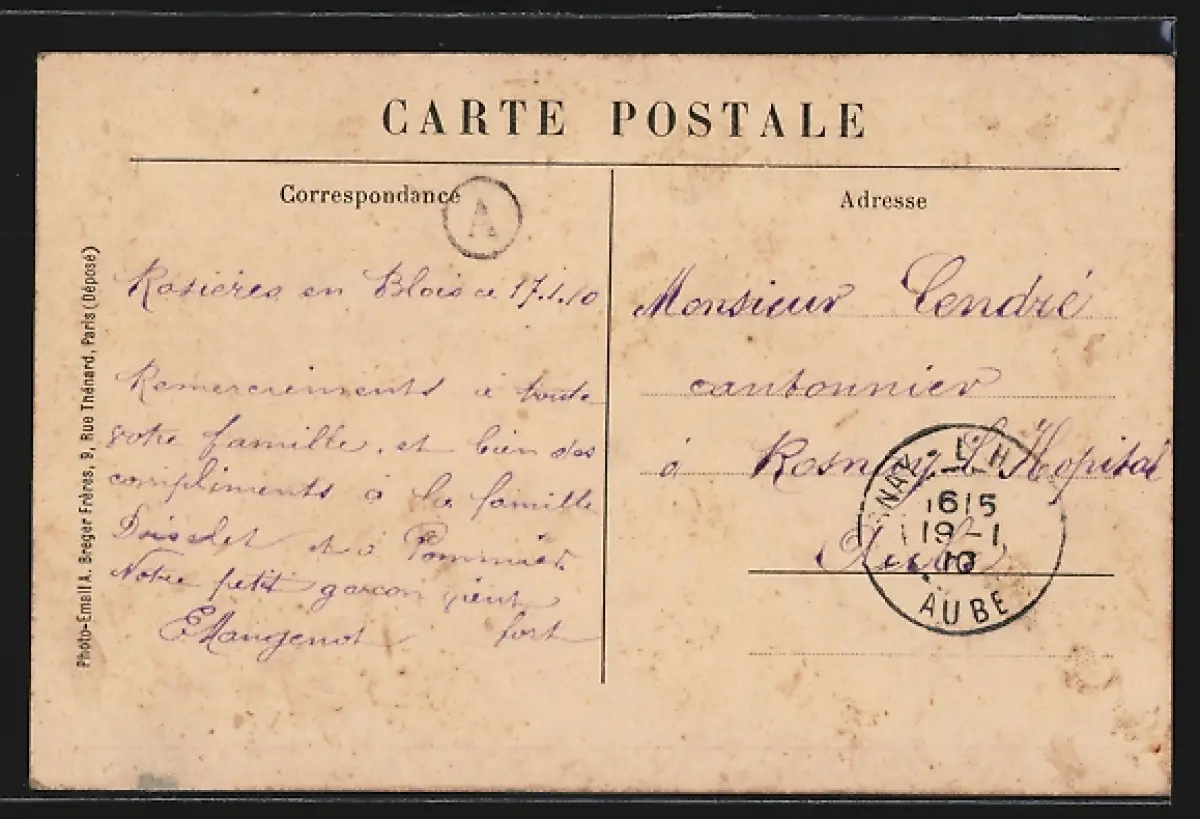 CARTE POSTALE
Correspondance
A
Adresse
Photo-Email A. Breger Frères, 9, Rue Thénard, Paris (Déposé)
Rosières en Blois ce 17.1.10
Remerciements à toute
votre famille, et bien des
compliments à la famille
et à Pommier
Notre petit garcon vient
fort
EMangenot
Monsieur Cendré
cantonnier
à Rosnay L'Hopital
Aube
NAY-L'H
1615
19-1
10
AUBE